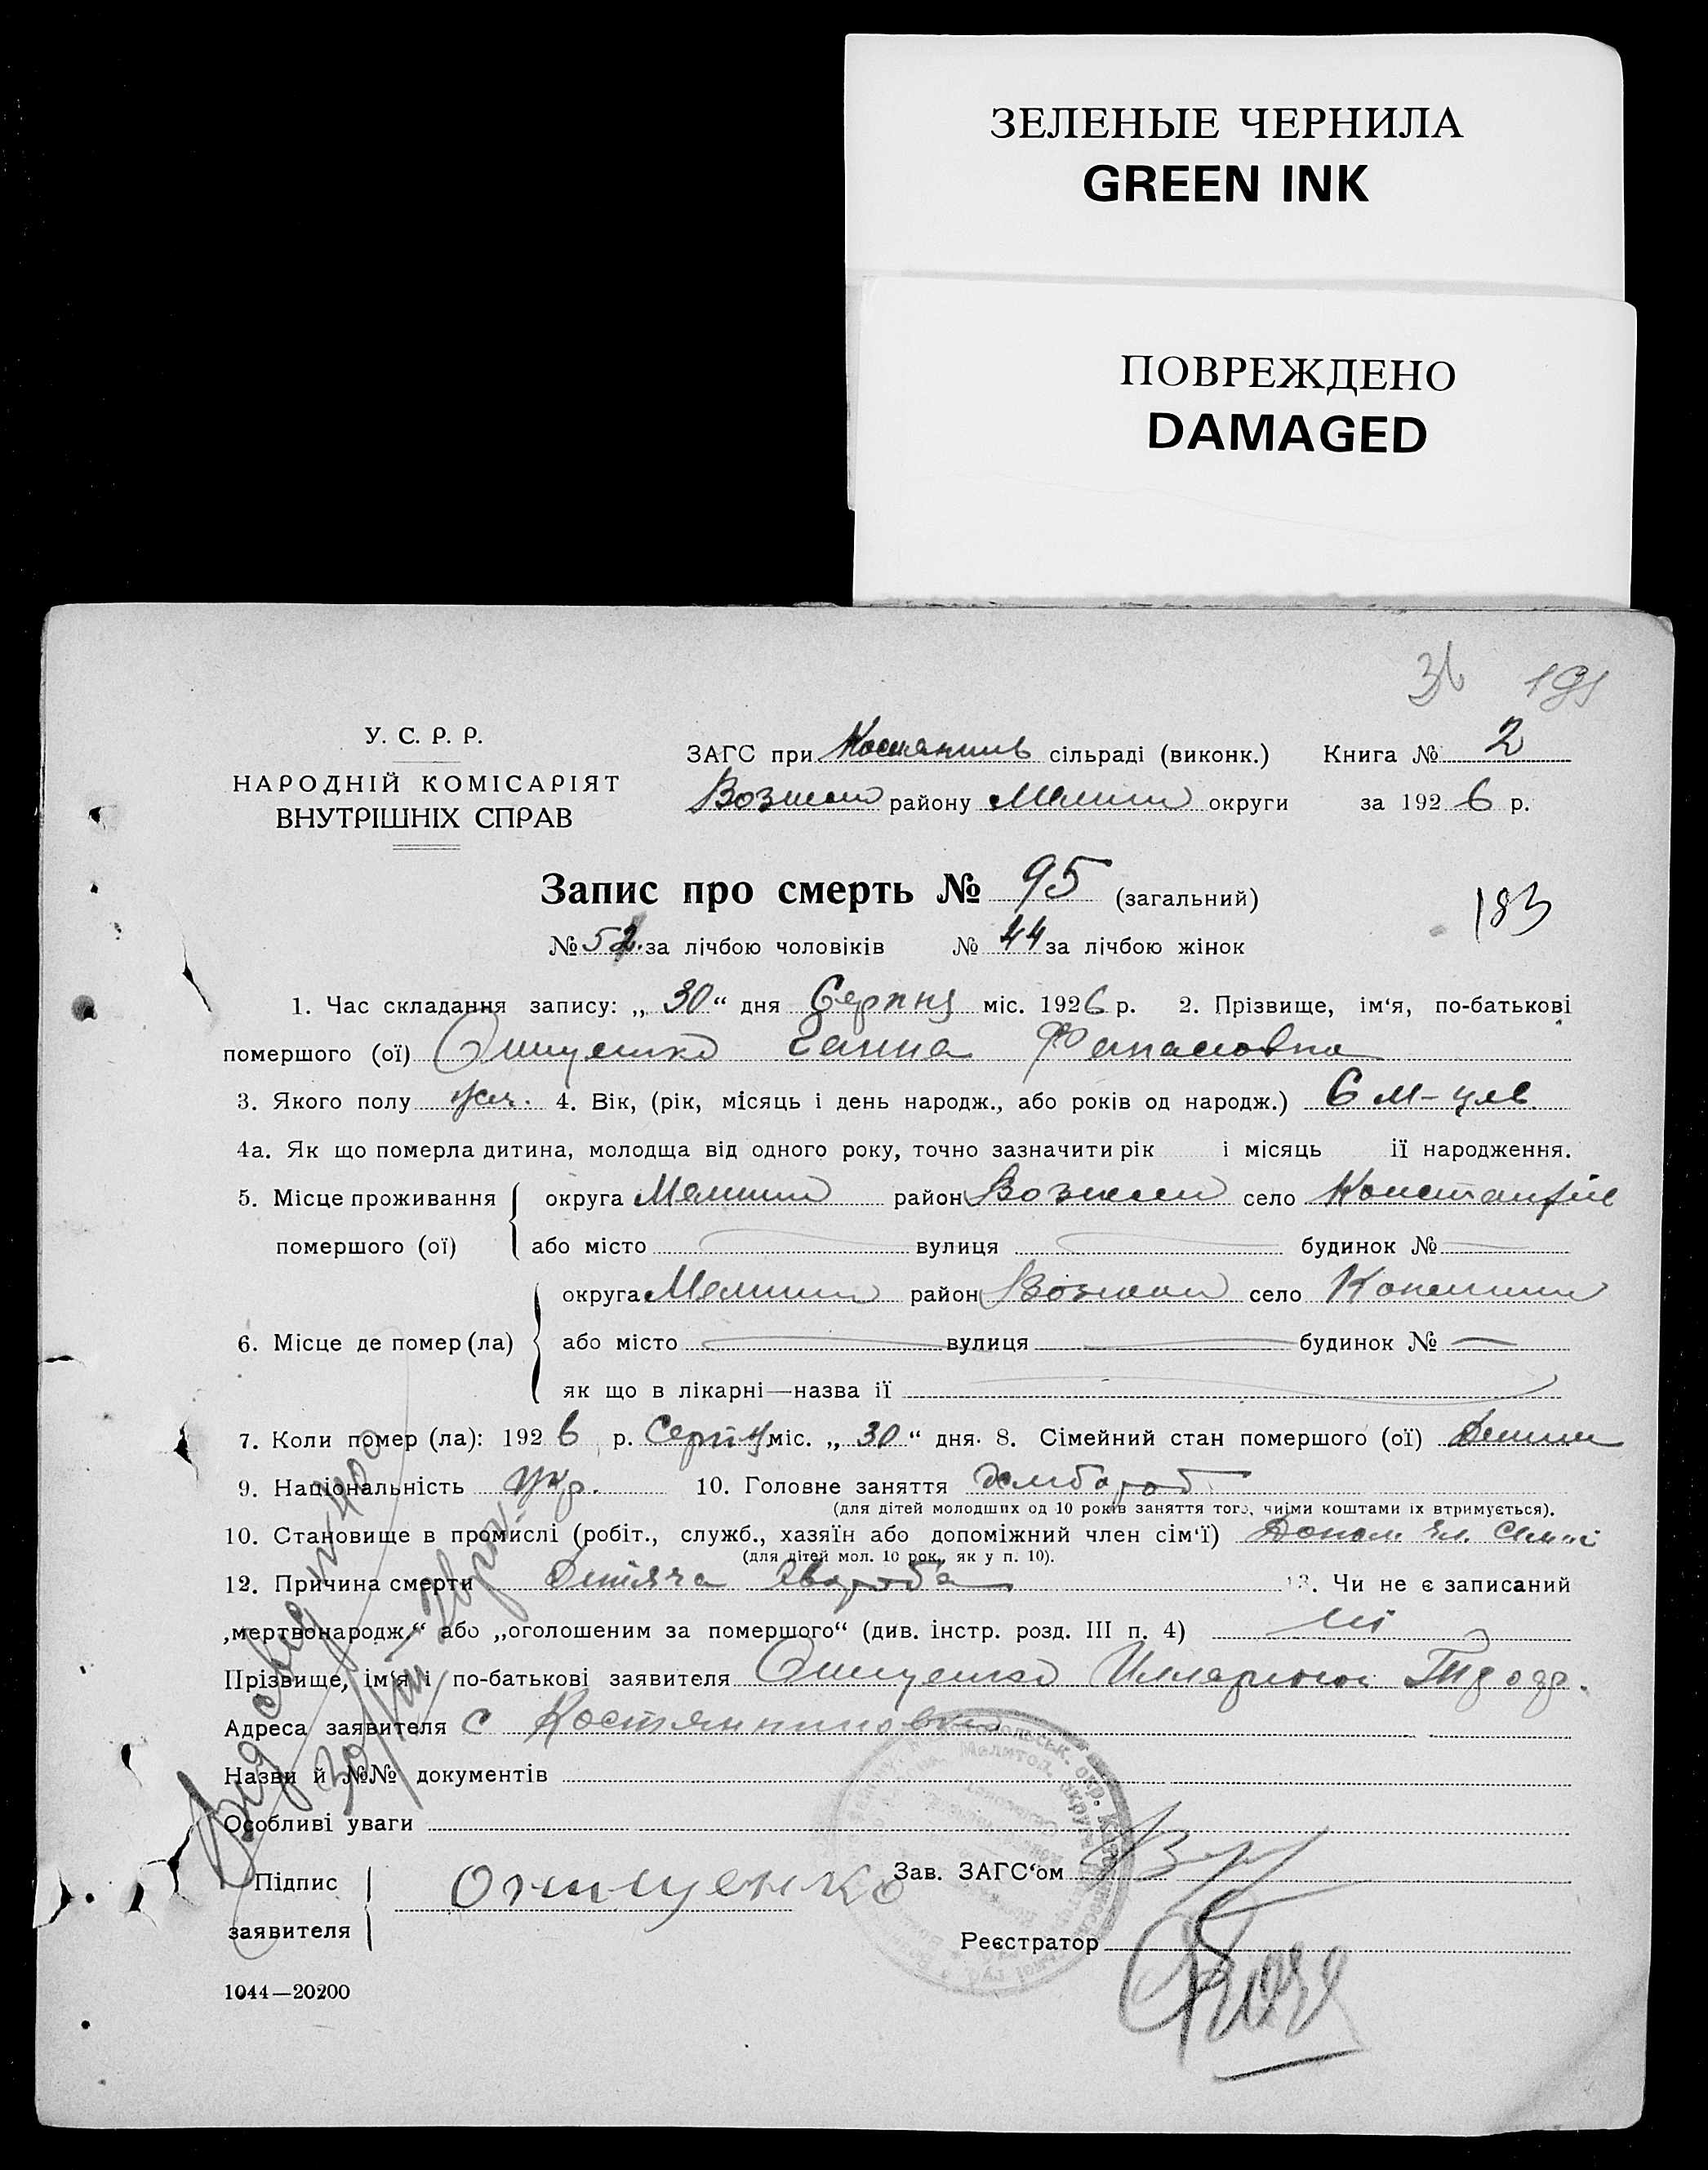 ЗЕЛЕНЫЕ ЧЕРНИЛА
GREEN INK
ПОВРЕЖДЕНО
DAMAGED
У. С. Р. Р.
НАРОДНІЙ КОМІСАРІЯТ
ВНУТРІШНІХ СПРАВ
ЗАГС при сільраді (виконк.) Книга № 2
району округи за 1926 р.
Запис про смерть № 95 (загальний)
183
№ 52 за лічбою чоловіків № 44 за лічбою жінок
1. Час складання запису: „30“ дня Серпня міс. 1926 р. 2. Прізвище, ім‘я, по-батькові
помершого (ої) Онищенко Ганна Фанасовна
3. Якого полу жін. 4. Вік, (рік, місяць і день народж., або років од народж.) 6 м-цев
4а. Як що померла дитина, молодща від одного року, точно зазначити рік і місяць її народження.
5. Місце проживання округа район село
помершого (ої) або місто вулиця будинок №
округа район село
6. Місце де помер (ла) або місто вулиця будинок №
як що в лікарні—назва її
7. Коли помер (ла): 1926 р. Серпня міс. „30“ дня. 8. Сімейний стан помершого (ої)
9. Національність Укр. 10. Головне заняття Хлібороб
(для дітей молодших од 10 років заняття того, чиїми коштами їх втримується).
10. Становище в промислі (робіт., служб., хазяїн або допоміжний член сім‘ї) Допом. чл. сем‘ї
(для дітей мол. 10 рок., як у п. 10).
12. Причина смерти Дитяча хвороба 13. Чи не є записаний
„мертвонародж.“ або „оголошеним за помершого“ (див. інстр. розд. III п. 4) ні
Прізвище, ім‘я і по-батькові заявителя Онищенко Илларион
Адреса заявителя С Костянтиновка
Назви й №№ документів
Особливі уваги
Підпис
заявителя
Онищенко
Зав. ЗАГС‘ом
Реєстратор
1044—20200